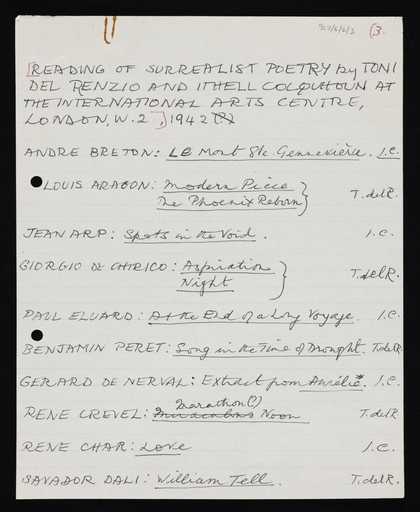 (3.
[READING OF SURREALIST POETRY by TONI
DEL RENZIO AND ITHELL COLQUHOUN AT
THE INTERNATIONAL ARTS CENTRE,
LONDON, W.2 ], 1942 (?)
ANDRE BRETON: LE Mont Ste Gennevière. I.C.
LOUIS ARAGON: Modern Piece
The Phoenix Reborn } T. del R.
JEAN ARP: Spots in the Void. I.C.
GIORGIO DE CHIRICO: Aspiration
Night } T. del R.
PAUL ELUARD: At the End of a Long Voyage. I.C.
BENJAMIN PERET: Song in the Time of Drought. T. del R.
GERARD DE NERVAL: Extract from Aurélie*. I.C.
Marathon (?)
RENE CREVEL: Miraculous Noon T. del R.
RENE CHAR: Love I.C.
SAVADOR DALI: William Tell. T. del R.